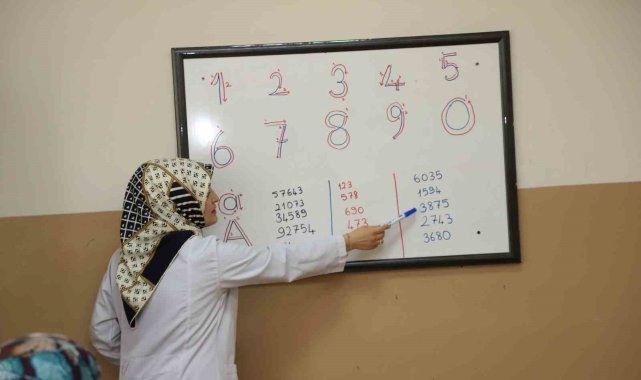 1 2 3 4 5
6 7 8 9 0
a
A
57643
21073
34589
92754
123
578
690
473
6035
1594
3875
2743
3680